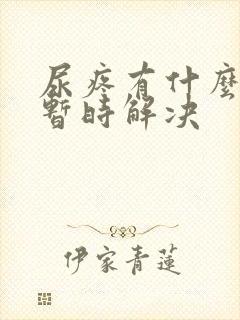 尿疼有什麼
暫時解决
伊家青蓮